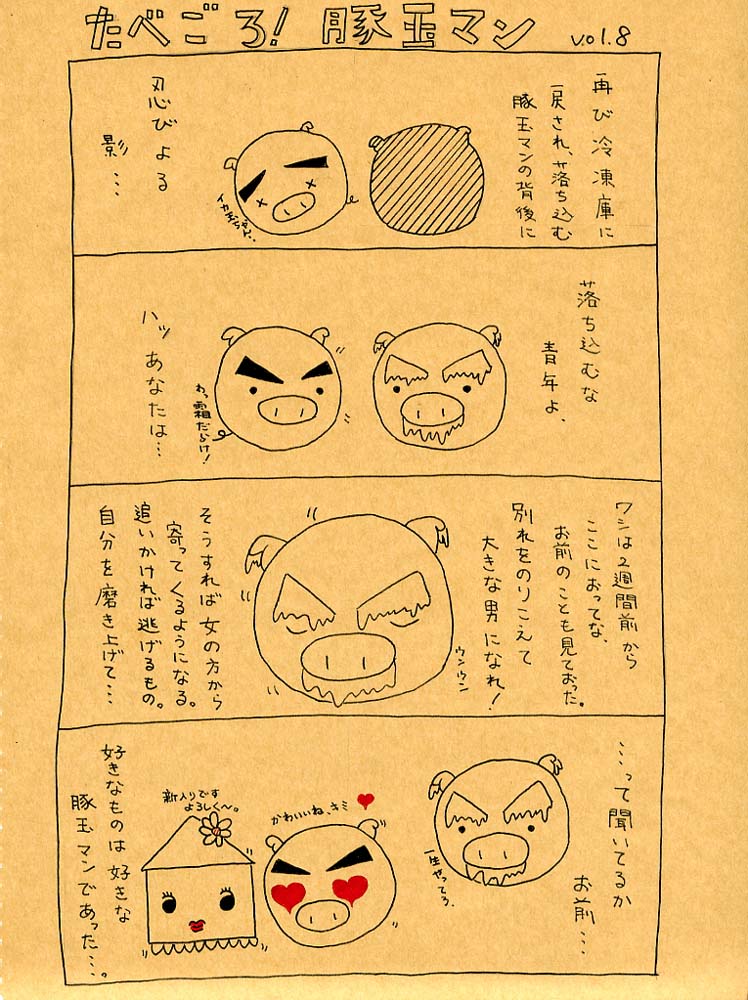 たべごろ! 豚玉マン vol.8
再び冷凍庫に
戻され、落ち込む
豚玉マンの背後に
忍びよる
影…
イカ玉ちゃん…
落ち込むな
青年よ、
ハッ あなたは…
わっ霜だらけ!
ワシは2週間前から
ここにおってな、
お前のことも見ておった。
別れをのりこえて
大きな男になれ!
ウンウン
そうすれば女の方から
寄ってくるようになる。
追いかければ逃げるもの。
自分を磨き上げて…
…って聞いてるか
お前…
一生やってろ。
かわいいね、キミ
新入りです
よろしく〜。
好きなものは好きな
豚玉マンであった…。